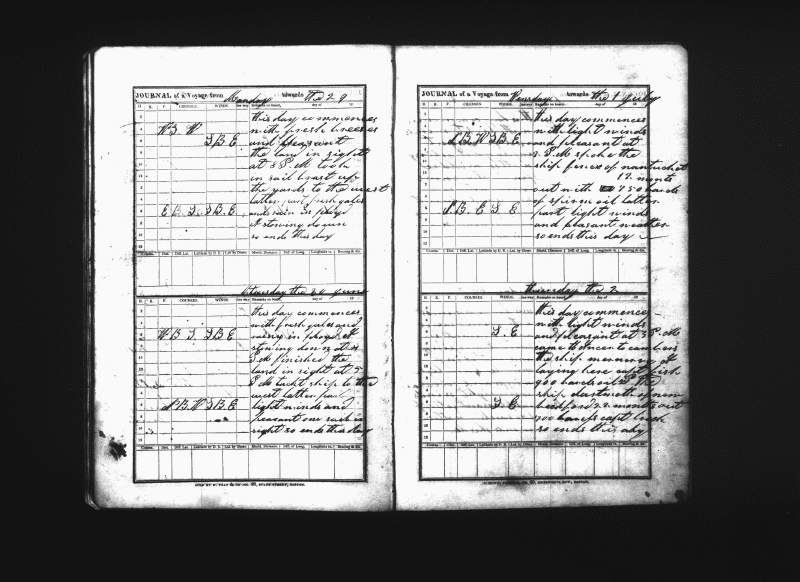 JOURNAL of a Voyage from Monday towards the 29
H. K. F. COURSES. WINDS. Remarks on board, day of 18
this day commences
W S W with fresh breezes
S B E and pleasant
the land in sight
at 8 P.M took
in sail brast up
the yards to the west
latter part fresh gales
E B S S B E and rain
stowing down
so ends this day
Course. Dist. Diff. Lat. Latitude by D. R. Lat. by Observ. Merid. Distance. Diff. of Long. Longitude in. Bearing & dis.
tuesday the 30 June
H. K. F. COURSES. WINDS. Remarks on board, day of 18
this day commences
with fresh gales and
W B S S B E
stowing down at 4
P.M finished the
land in sight at 5
P.M tackt ship to the
west latter part
S B W S B E light winds and
pleasant one sail in
sight so ends this day
Course. Dist. Diff. Lat. Latitude by D. R. Lat. by Observ. Merid. Distance. Diff. of Long. Longitude in. Bearing & dis.
STATE STREET, BOSTON.
JOURNAL of a Voyage from towards the 1 July
H. K. F. COURSES. WINDS. Remarks on board, day of 18
this day commences
with light winds
S B W S B E and pleasant at
P.M spoke the
ship of nantucket
12 months
out with 750 barels
of sperm oil latter
S B E S E part light winds
and pleasant weather
so ends this day
Course. Dist. Diff. Lat. Latitude by D. R. Lat. by Observ. Merid. Distance. Diff. of Long. Longitude in. Bearing & dis.
thursday the 2
H. K. F. COURSES. WINDS. Remarks on board, day of 18
this day commences
with light winds
S E and pleasant at 3 P.M
came to
the ship
laying here
900 barels oil the
ship of new
S E 22 months out
700 barels
so ends this day
Course. Dist. Diff. Lat. Latitude by D. R. Lat. by Observ. Merid. Distance. Diff. of Long. Longitude in. Bearing & dis.
ROW, BOSTON.